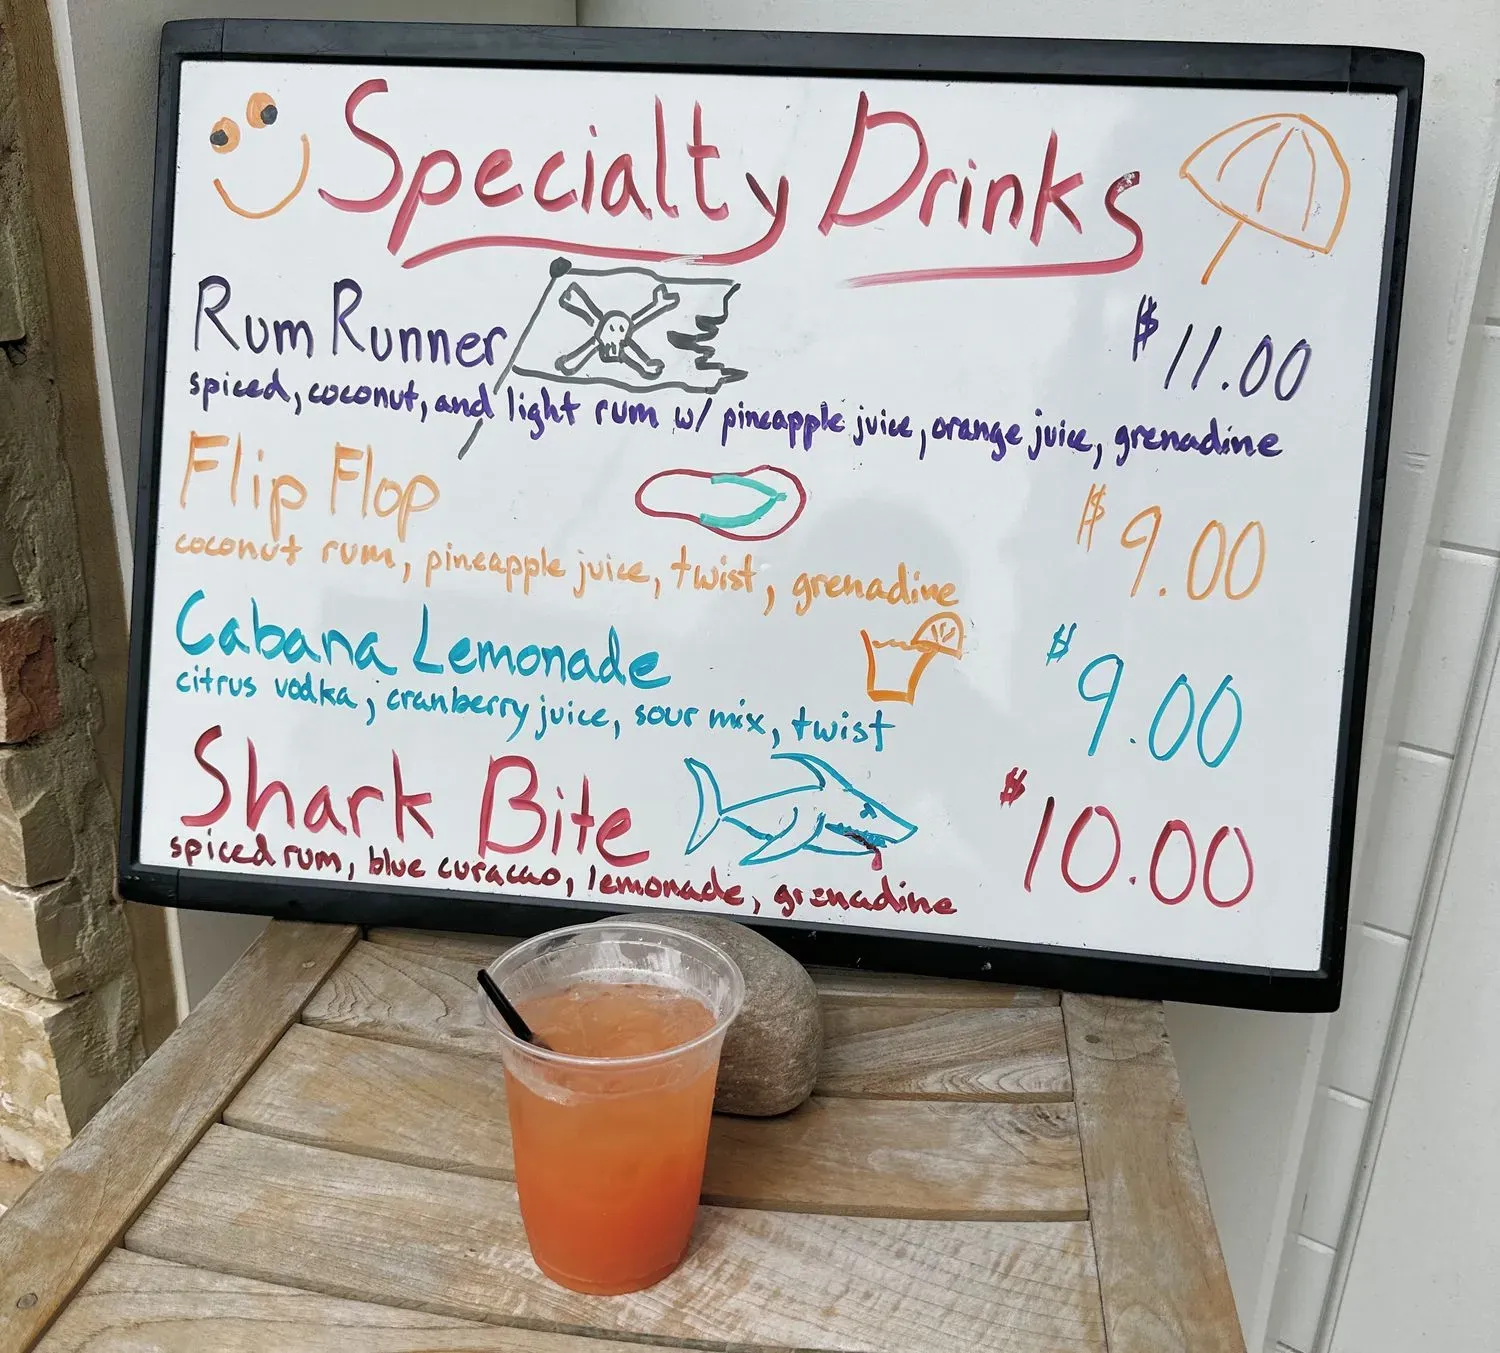 Specialty Drinks
Rum Runner $11.00
spiced, coconut, and light rum w/ pineapple juice, orange juice, grenadine
Flip Flop $9.00
coconut rum, pineapple juice, twist, grenadine
Cabana Lemonade $9.00
citrus vodka, cranberry juice, sour mix, twist
Shark Bite $10.00
spiced rum, blue curacao, lemonade, grenadine